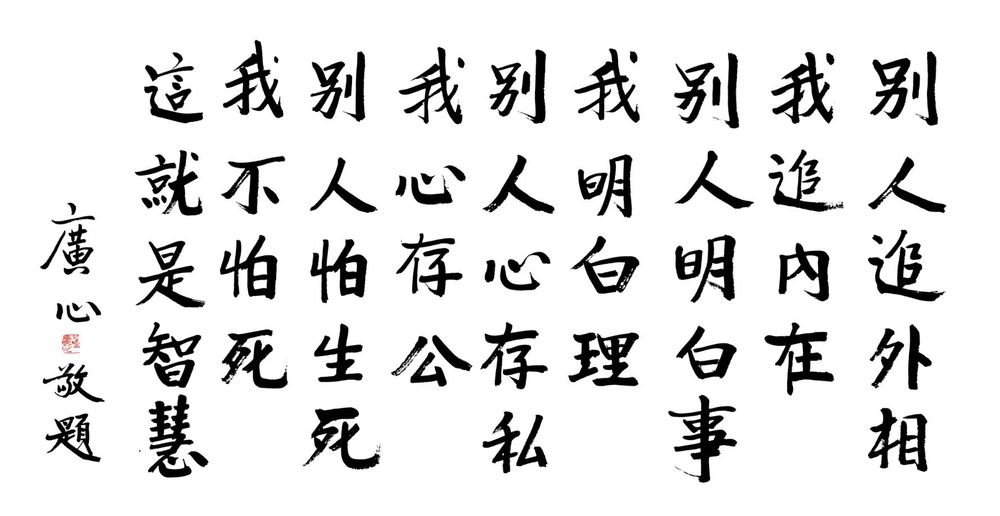 別人追外相
我追內在
別人明白事
我明白理
別人心存私
我心存公
別人怕生死
我不怕死
這就是智慧
廣心敬題